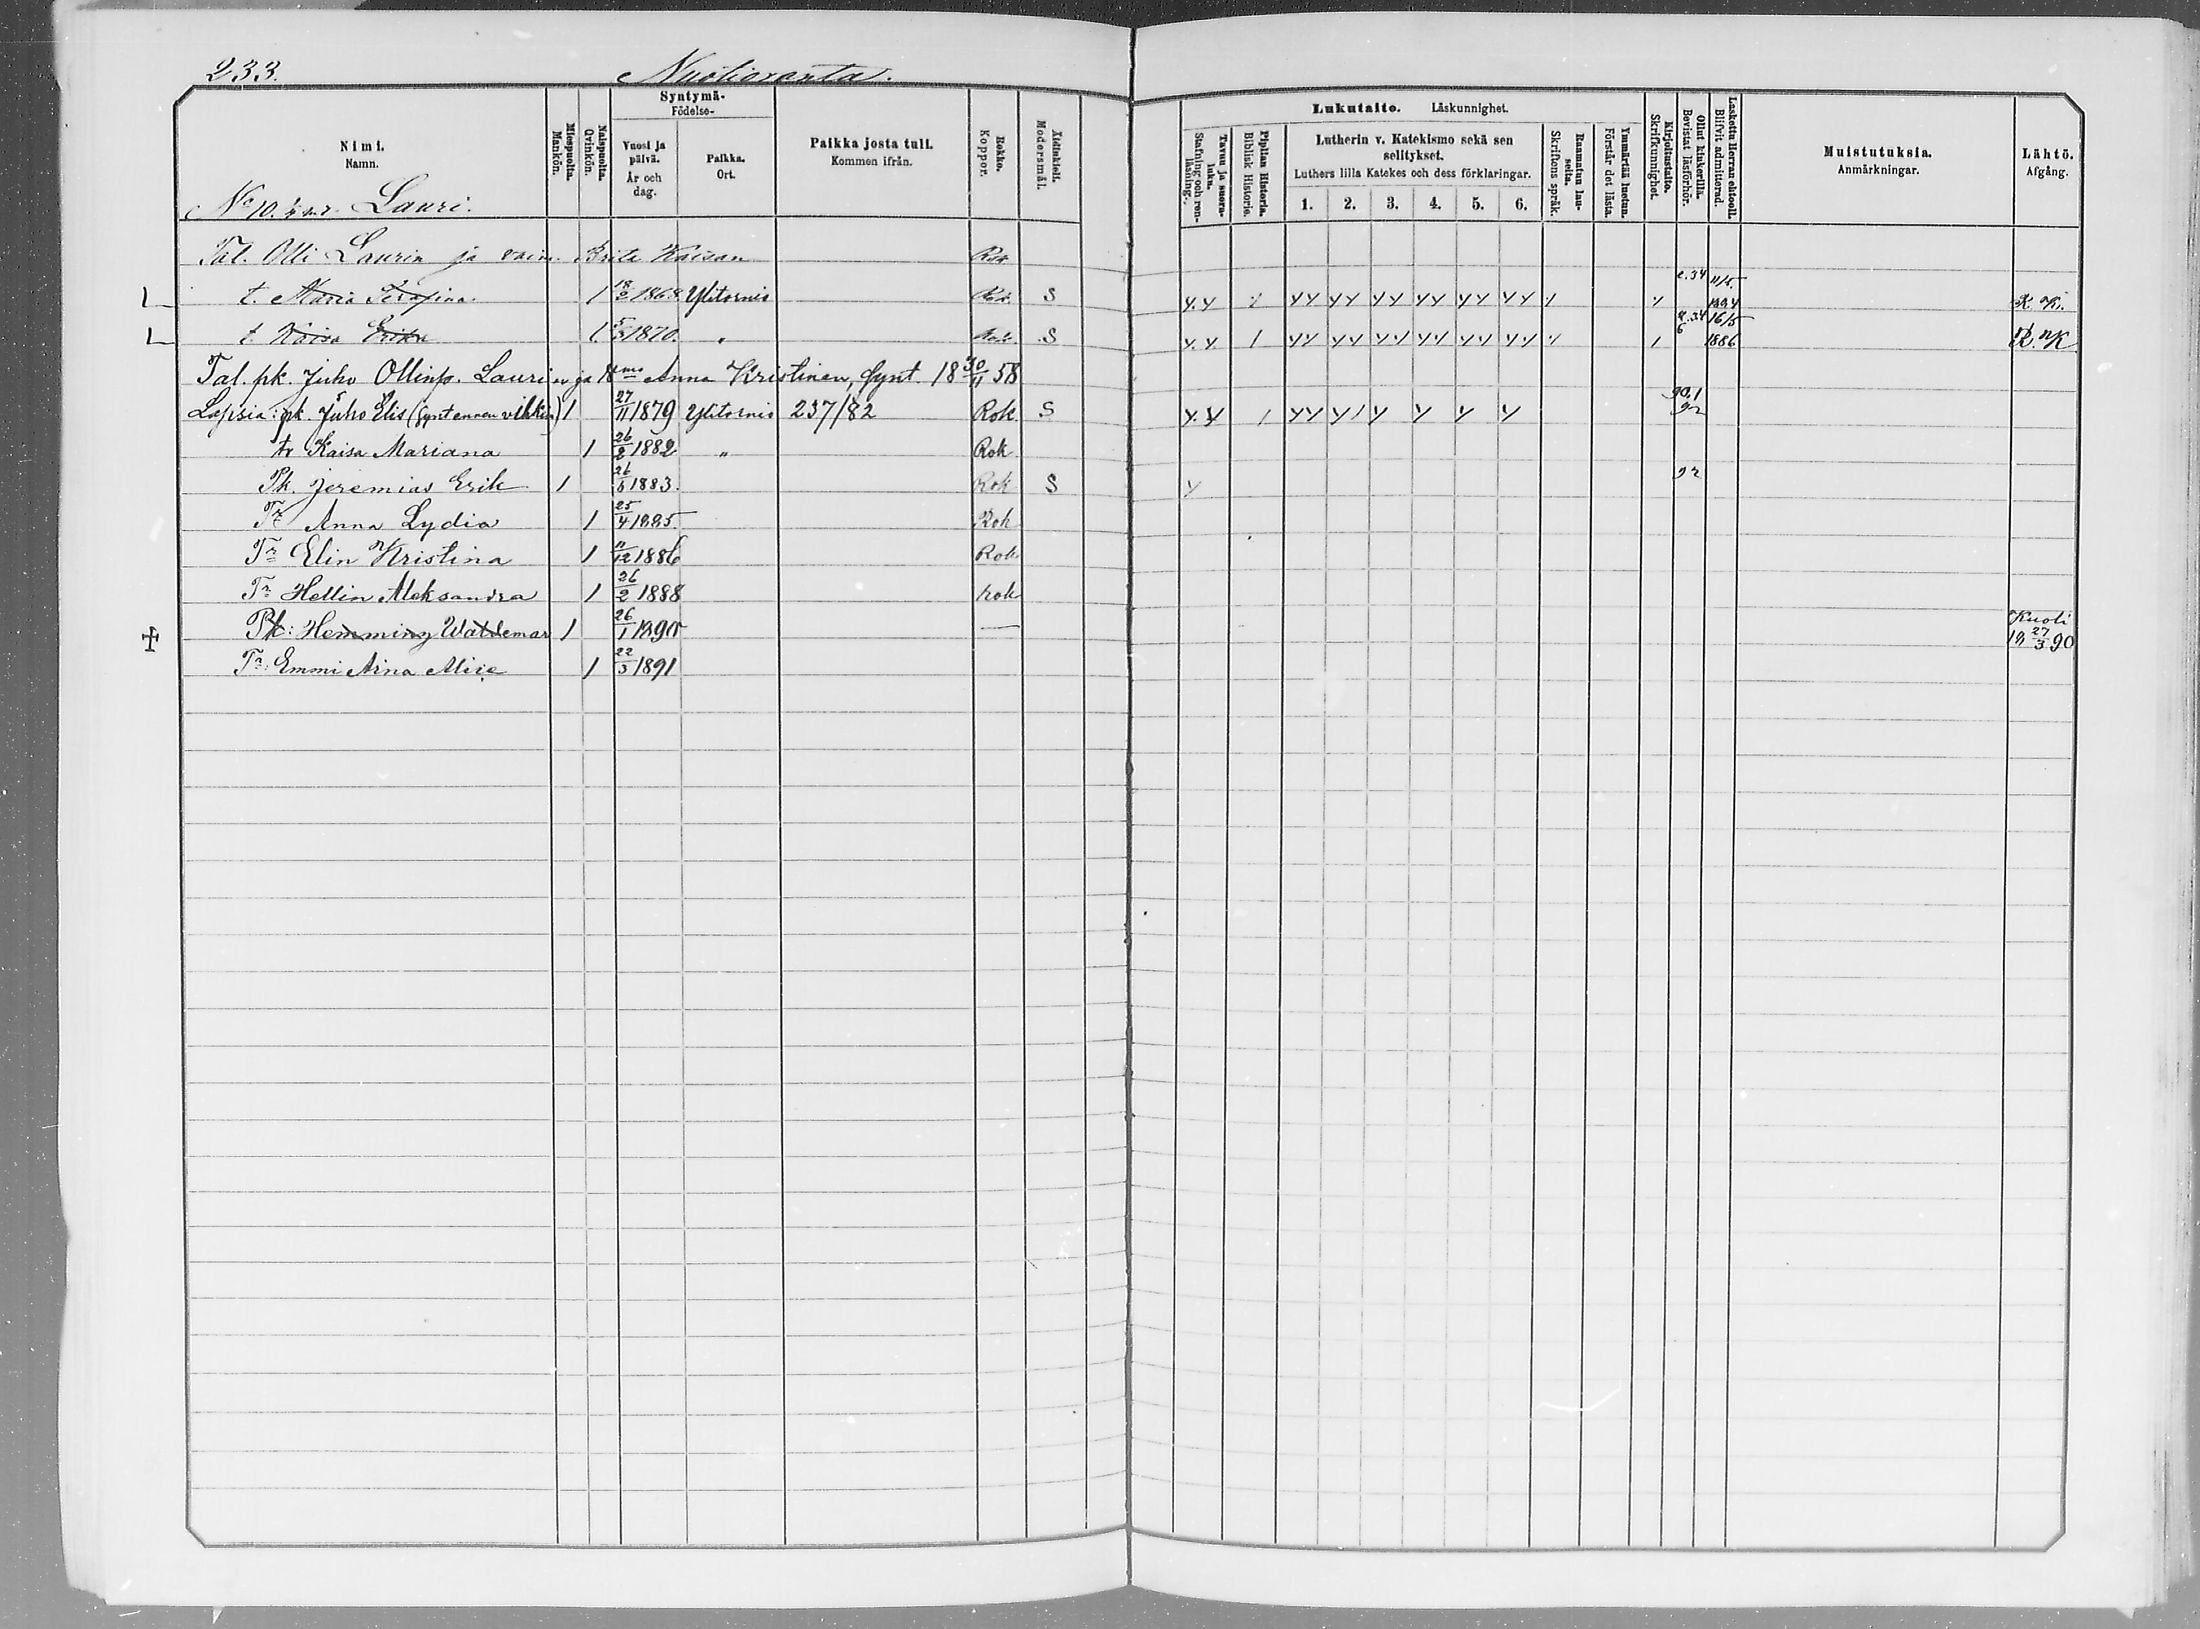 233. Nuotioranta.
Nimi. Namn.
Miespuolta. Mankön.
Naispuolta. Qvinkön.
Syntymä- Födelse-
Vuosi ja päivä. År och dag.
Paikka. Ort.
Paikka josta tuli. Kommen ifrån.
Rokko. Koppor.
Äidinkieli. Modersmål.
Lukutaito. Läskunnighet.
Tavun ja suora-luku. Stafning och ren-läsning.
Piplian Historia. Biblisk Historie.
Lutherin v. Katekismo sekä sen selitykset.
Luthers lilla Katekes och dess förklaringar.
1. 2. 3. 4. 5. 6.
Raamatun lau-seita. Skriftens språk.
Ymmärtää luetun. Förstår det lästa.
Kirjoitustaito. Skrifkunnighet.
Ollut kinkerillä. Bevistat läsförhör.
Laskettu Herran ehtooll. Blifvit admitterad.
Muistutuksia. Anmärkningar.
Lähtö. Afgång.
No 10. Lauri.
Tal. Olli Laurin ja vaim. Brita Kaisan Rok
t. Maria Serafina. 1 18/2 1868 Ylitornio Rok. S y.y yy yy yy yy yy yy 11/5.
t Kaisa Erika 1 5/5 1870. " Rok S y.y. 1 yy yy yy yy yy yy 1 16/5 1886 R. K
Tal. pk. Juho Ollinp. Laurin ja Anna Kristinan, synt. 18 30/11 58
Lapsia: pk. Juho Elis (synt ennen vihkiä) 1 27/11 1879 Ylitornio 237/82 Rok S y.y 1 yy y1 y y y y 90.1 92
tr Kaisa Mariana 1 26/2 1882 " Rok
Pk. Jeremias Erik 1 26/5 1883. Rok S y 92
Tr Anna Lydia 1 25/4 1885. Rok
Tr Elin Kristina 1 11/12 1886 Rok
Tr Hellin Aleksandra 1 26/2 1888 rok
Pk: Hemming Waldemar 1 26/1 1890 — Kuoli 18 27/3 90
Tr: Emmi Aina Alice 1 22/3 1891